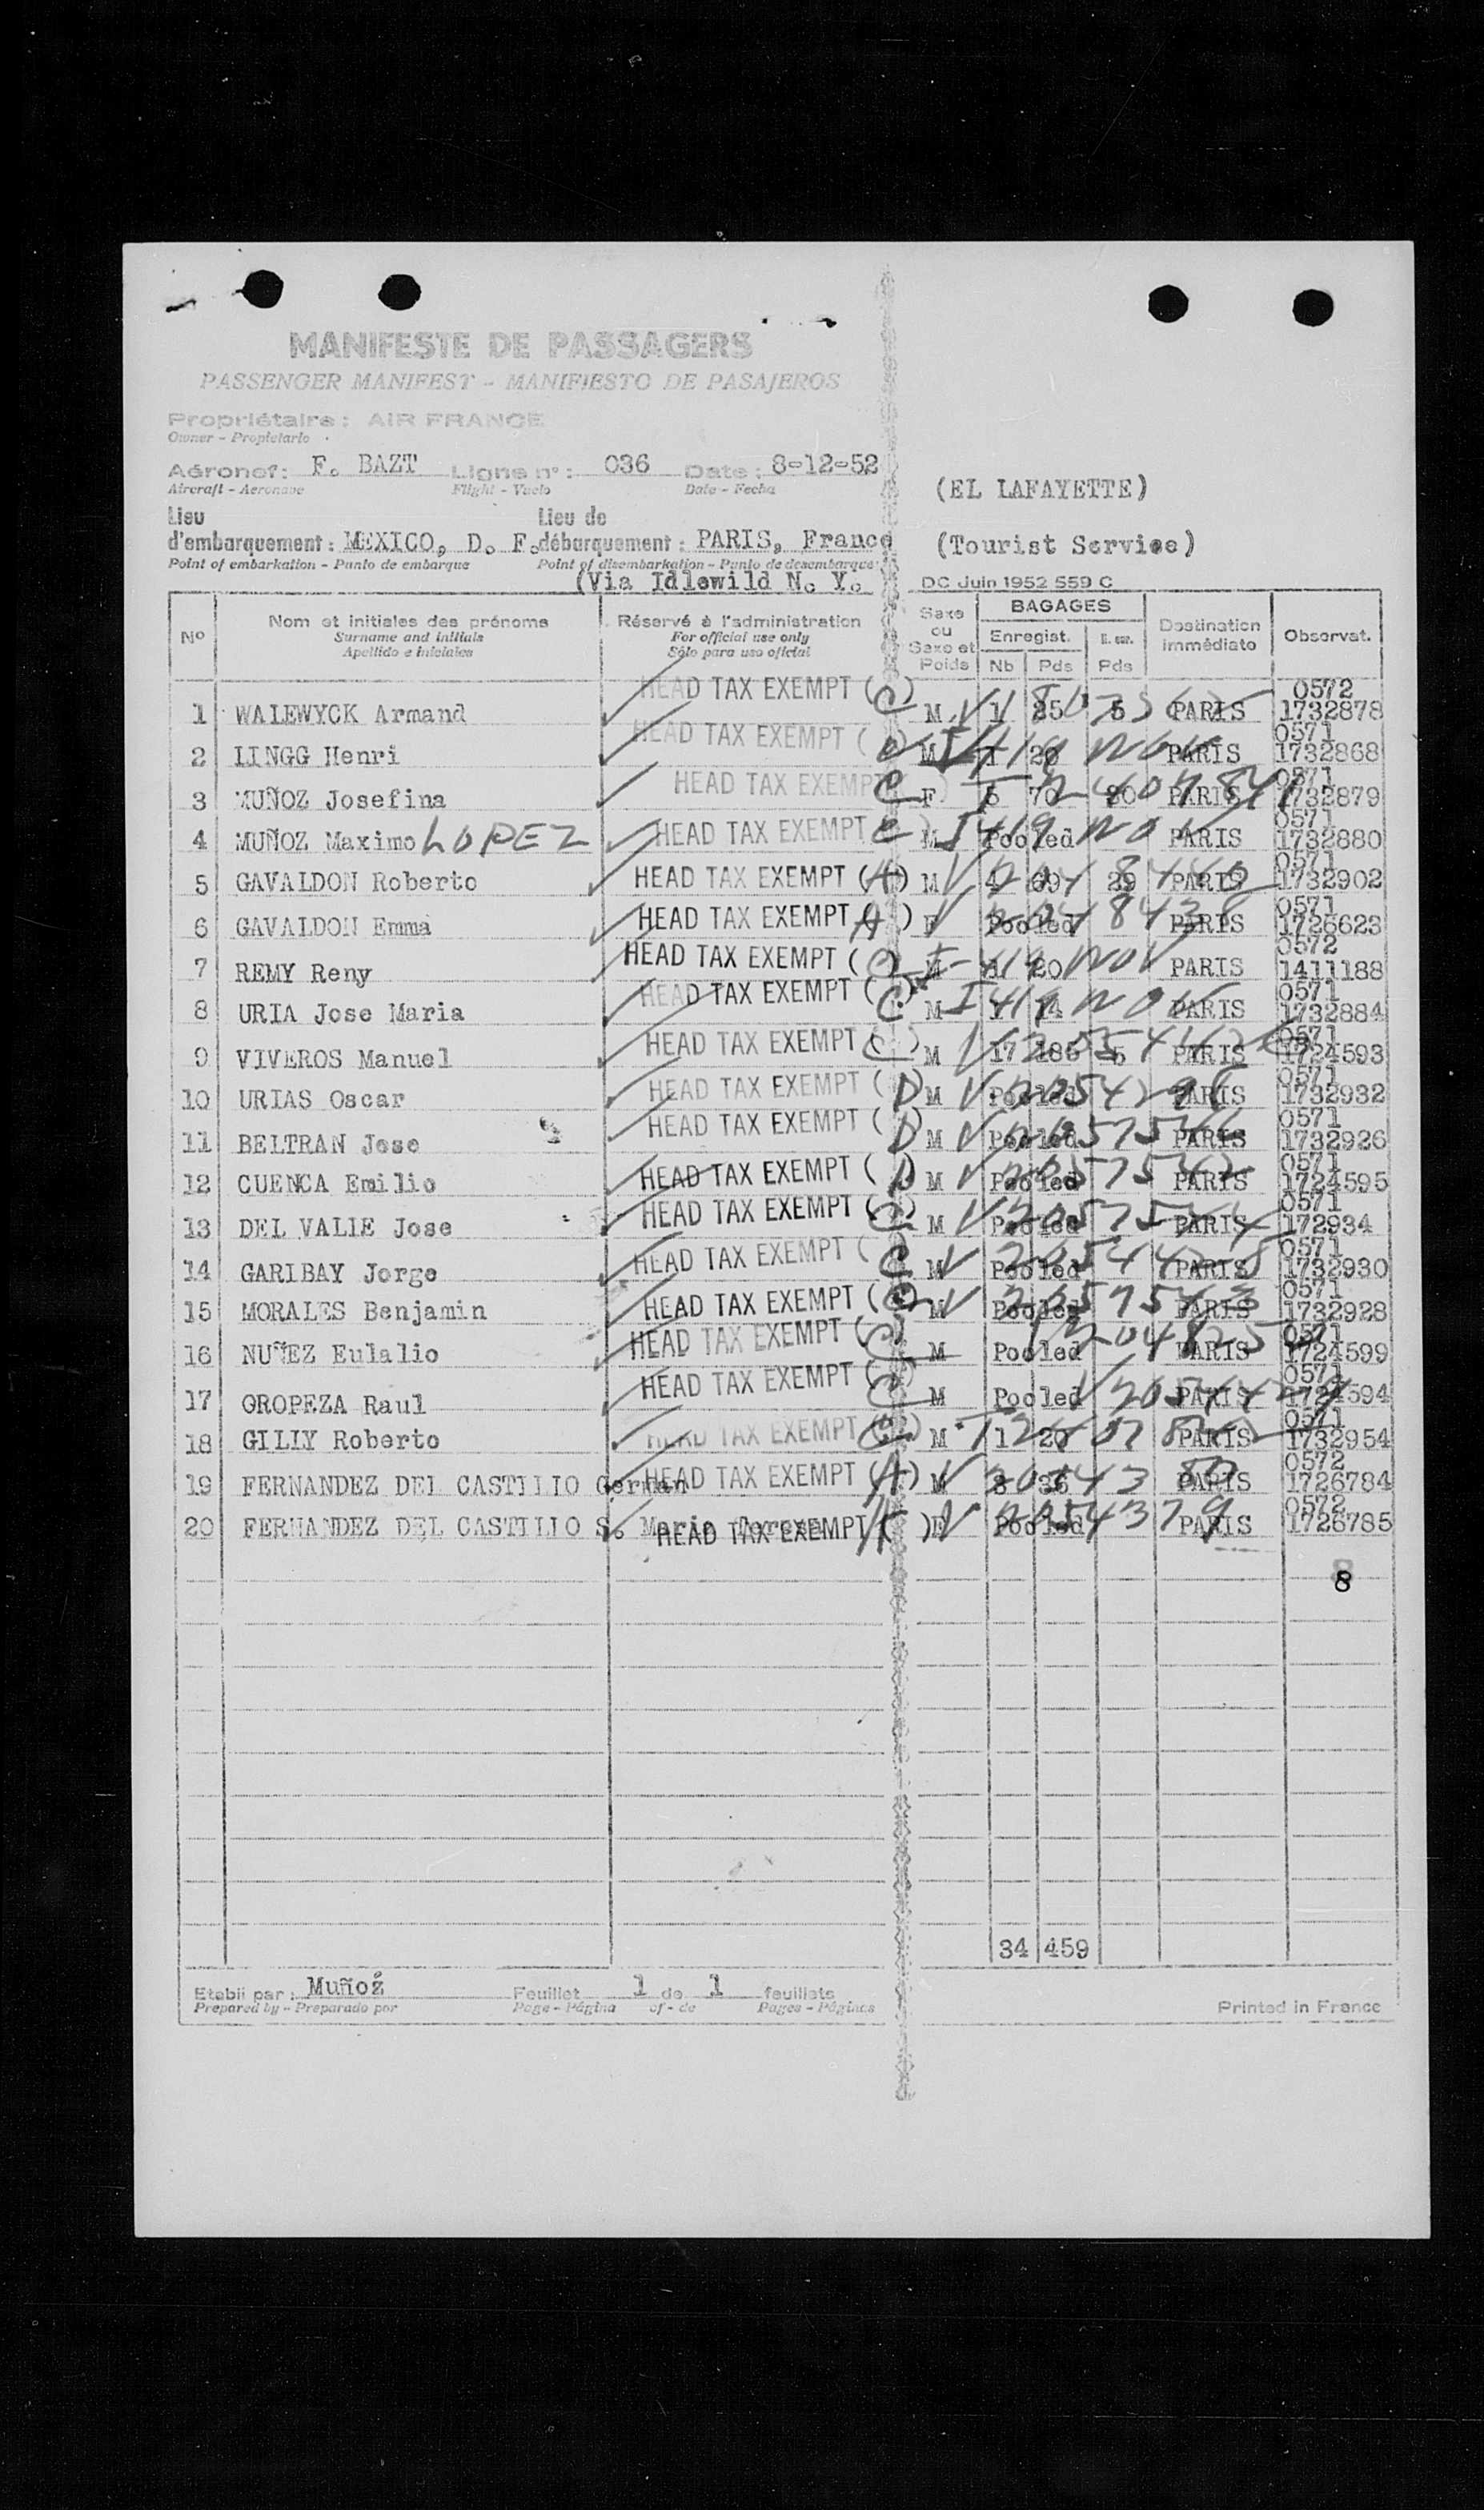 MANIFESTE DE PASSAGERS
PASSENGER MANIFEST - MANIFIESTO DE PASAJEROS
Propriétaire : AIR FRANCE
Owner - Propietario
Aéronef : F. BAZT Ligne n° : 036 Date : 8-12-52
Aircraft - Aeronave Flight - Vuelo Date - Fecha
(EL LAFAYETTE)
Lieu Lieu de
d'embarquement : MEXICO, D. F. débarquement : PARIS, France
(Tourist Service)
Point of embarkation - Punto de embarque Point of disembarkation - Punto de desembarque
(Via Idlewild N. Y.
DC Juin 1952 559 C
N° Nom et initiales des prénoms Réservé à l'administration Sexe ou Sexe et Poids BAGAGES Destination immédiate Observat.
Surname and initials For official use only Enregist.
Apellido e iniciales Sólo para uso oficial Nb Pds Pds
1 WALEWYCK Armand HEAD TAX EXEMPT (C) M 1 25 5 PARIS 0572 1732878
2 LINGG Henri HEAD TAX EXEMPT M 1 20 PARIS 0571 1732868
3 MUÑOZ Josefina HEAD TAX EXEMPT C F 5 70 PARIS 0571 1732879
4 MUÑOZ Maximo LOPEZ HEAD TAX EXEMPT C M Pooled PARIS 0571 1732880
5 GAVALDON Roberto HEAD TAX EXEMPT (A) M 4 69 29 PARIS 0571 1732902
6 GAVALDON Emma HEAD TAX EXEMPT (A) F Pooled PARIS 0571 1726623
7 REMY Reny HEAD TAX EXEMPT (C) M 20 PARIS 0572 1411188
8 URIA Jose Maria HEAD TAX EXEMPT (C) M 1 14 PARIS 0571 1732884
9 VIVEROS Manuel HEAD TAX EXEMPT (C) M 17 186 5 PARIS 0571 1724593
10 URIAS Oscar HEAD TAX EXEMPT (D M Pooled PARIS 0571 1732932
11 BELTRAN Jose HEAD TAX EXEMPT (D M Pooled PARIS 0571 1732926
12 CUENCA Emilio HEAD TAX EXEMPT (D M Pooled PARIS 0571 1724595
13 DEL VALLE Jose HEAD TAX EXEMPT (C) M Pooled PARIS 0571 172934
14 GARIBAY Jorge HEAD TAX EXEMPT (C M Pooled PARIS 0571 1732930
15 MORALES Benjamin HEAD TAX EXEMPT (C) M Pooled PARIS 0571 1732928
16 NUÑEZ Eulalio HEAD TAX EXEMPT (C) M Pooled PARIS 0571 1724599
17 OROPEZA Raul HEAD TAX EXEMPT (C) M Pooled PARIS 0571 1724594
18 GILLY Roberto HEAD TAX EXEMPT (C) M 1 20 PARIS 0571 1732954
19 FERNANDEZ DEL CASTILLO German HEAD TAX EXEMPT (A) M 3 36 PARIS 0572 1726784
20 FERNANDEZ DEL CASTILLO S. Maria Teresa HEAD TAX EXEMPT F Pooled PARIS 0572 1726785
8
34 459
Etabli par : Muñoz Feuillet 1 de 1 feuillets
Prepared by - Preparado por Page - Página of - de Pages - Páginas
Printed in France